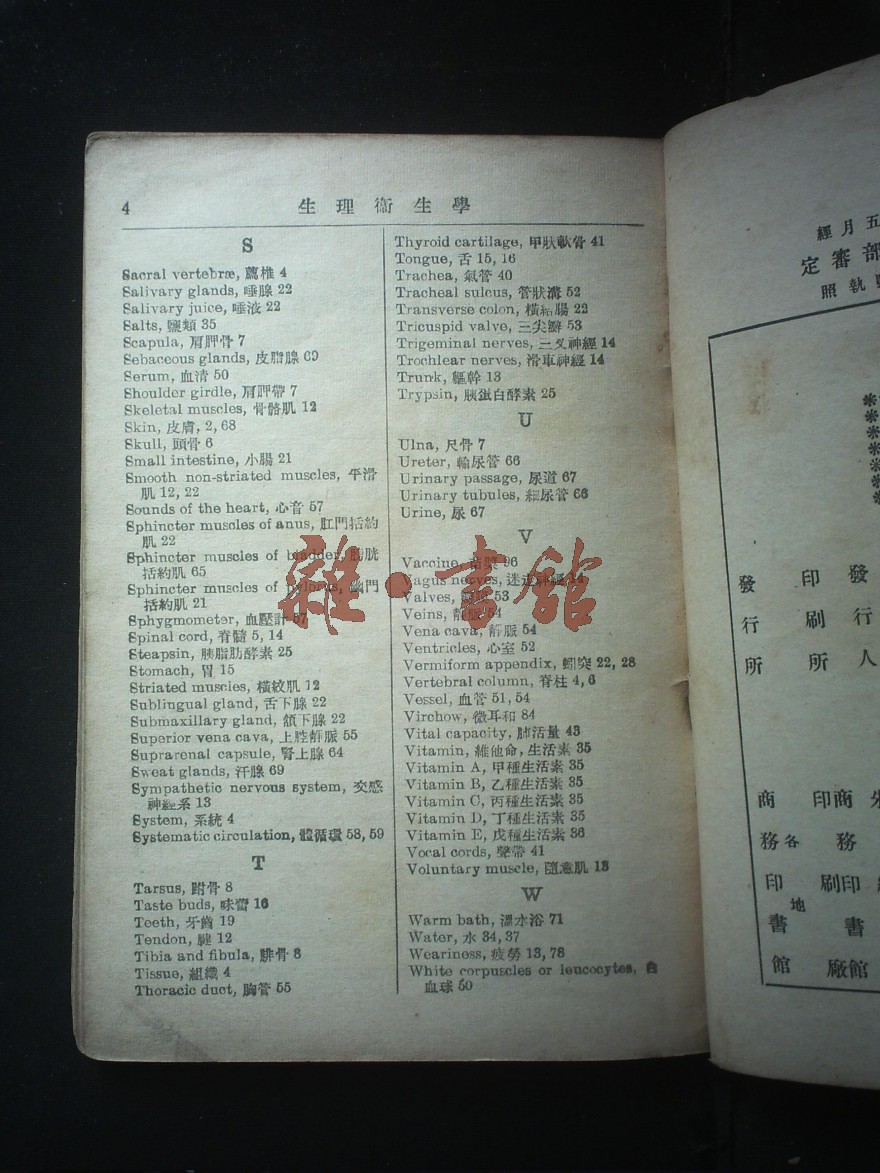 4 生理衞生學
S
Sacral vertebræ, 薦椎 4
Salivary glands, 唾腺 22
Salivary juice, 唾液 22
Salts, 鹽類 35
Scapula, 肩胛骨 7
Sebaceous glands, 皮脂腺 69
Serum, 血清 50
Shoulder girdle, 肩胛帶 7
Skeletal muscles, 骨骼肌 12
Skin, 皮膚, 2, 68
Skull, 頭骨 6
Small intestine, 小腸 21
Smooth non-striated muscles, 平滑
肌 12, 22
Sounds of the heart, 心音 57
Sphincter muscles of anus, 肛門括約
肌 22
Sphincter muscles of bladder, 膀胱
括約肌 65
Sphincter muscles of pylorus, 幽門
括約肌 21
Sphygmometer, 血壓計 57
Spinal cord, 脊髓 5, 14
Steapsin, 胰脂肪酵素 25
Stomach, 胃 15
Striated muscles, 橫紋肌 12
Sublingual gland, 舌下腺 22
Submaxillary gland, 頷下腺 22
Superior vena cava, 上腔靜脈 55
Suprarenal capsule, 腎上腺 64
Sweat glands, 汗腺 69
Sympathetic nervous system, 交感
神經系 13
System, 系統 4
Systematic circulation, 體循環 58, 59
T
Tarsus, 跗骨 8
Taste buds, 味蕾 16
Teeth, 牙齒 19
Tendon, 腱 12
Tibia and fibula, 腓骨 8
Tissue, 組織 4
Thoracic duct, 胸管 55
Thyroid cartilage, 甲狀軟骨 41
Tongue, 舌 15, 16
Trachea, 氣管 40
Tracheal sulcus, 管狀溝 52
Transverse colon, 橫結腸 22
Tricuspid valve, 三尖瓣 53
Trigeminal nerves, 三叉神經 14
Trochlear nerves, 滑車神經 14
Trunk, 軀幹 13
Trypsin, 胰蛋白酵素 25
U
Ulna, 尺骨 7
Ureter, 輸尿管 66
Urinary passage, 尿道 67
Urinary tubules, 細尿管 66
Urine, 尿 67
V
Vaccine, 96
Vagus nerves, 迷走神經 14
Valves, 53
Veins, 靜脈 54
Vena cava, 靜脈 54
Ventricles, 心室 52
Vermiform appendix, 蚓突 22, 28
Vertebral column, 脊柱 4, 6
Vessel, 血管 51, 54
Virchow, 微耳和 84
Vital capacity, 肺活量 43
Vitamin, 維他命, 生活素 35
Vitamin A, 甲種生活素 35
Vitamin B, 乙種生活素 35
Vitamin C, 丙種生活素 35
Vitamin D, 丁種生活素 35
Vitamin E, 戊種生活素 36
Vocal cords, 聲帶 41
Voluntary muscle, 隨意肌 13
W
Warm bath, 溫水浴 71
Water, 水 34, 37
Weariness, 疲勞 13, 78
White corpuscles or leucocytes, 白
血球 50
雜·書館
五月經
部審定
執照
發行人
印刷所
發行所
商務印書館
印刷
商務印書館
各地